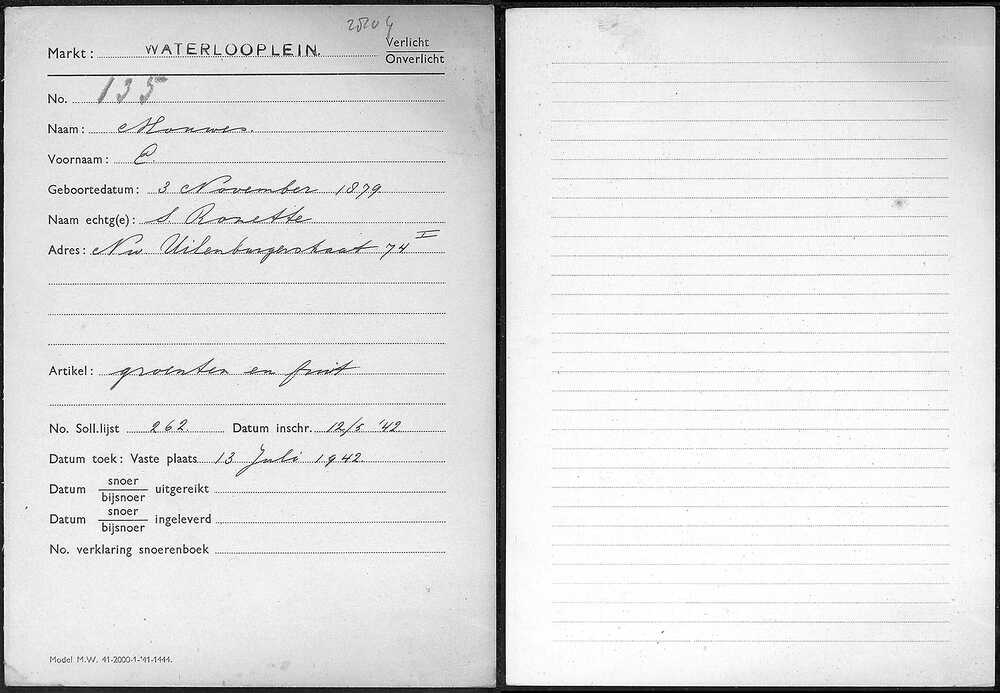 25204
Markt: WATERLOOPLEIN. Verlicht
Onverlicht
No. 135
Naam: Mouwes.
Voornaam: E.
Geboortedatum: 3 November 1879.
Naam echtg(e): S. Ronette
Adres: Nw Uilenburgerstraat 74 I
Artikel: groenten en fruit
No. Soll.lijst 262 Datum inschr. 12/5 '42
Datum toek: Vaste plaats 13 Juli 1942.
Datum snoer
bijsnoer uitgereikt
Datum snoer
bijsnoer ingeleverd
No. verklaring snoerenboek
Model M.W. 41-2000-1-'41-1444.